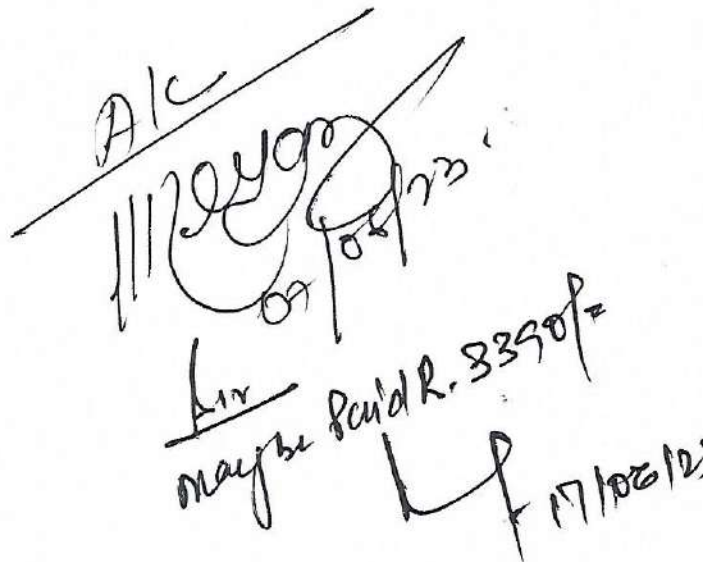 A/C
07/06/23
Sir
may be Paid R. 3390/=
17/06/23